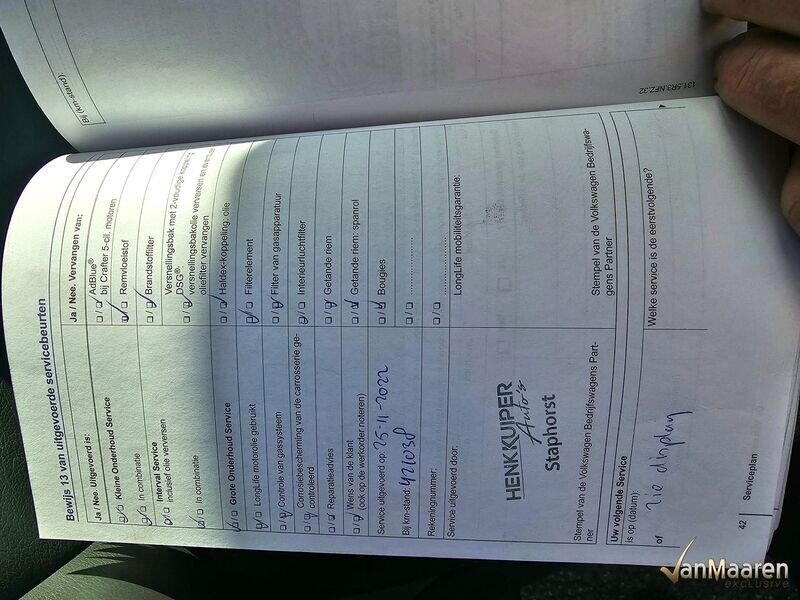 Bij (km-stand):
131.5R3.NFZ.32
Bewijs 13 van uitgevoerde servicebeurten
Ja / Nee. Uitgevoerd is:
Kleine Onderhoud Service
In combinatie
Interval Service
inclusief olie verversen
In combinatie
Grote Onderhoud Service
LongLife motorolie gebruikt
Controle van gassysteem
Corrosiebescherming van de carrosserie ge-
controleerd
Reparatieadvies
Wens van de klant
(ook op de werkorder noteren)
Service uitgevoerd op: 25-11-2022
Bij km-stand: 421038
Rekeningnummer:
Service uitgevoerd door:
HENK KUIPER
Auto's
Staphorst
Stempel van de Volkswagen Bedrijfswagens Part-
ner
Ja / Nee. Vervangen van:
AdBlue®
bij Crafter 5-cil. motoren
Remvloeistof
Brandstoffilter
Versnellingsbak met 2-voudige koppeling
DSG®:
versnellingsbakolie verversen en eventueel
oliefilter vervangen
Haldex-koppeling: olie
Filterelement
Filter van gasapparatuur
Interieurluchtfilter
Getande riem
Getande riem: spanrol
Bougies
LongLife mobiliteitsgarantie:
Stempel van de Volkswagen Bedrijfswa-
gens Partner
Uw volgende Service
is op (datum):
of zie display
Welke service is de eerstvolgende?
42
Serviceplan
VanMaaren
EXCLUSIVE